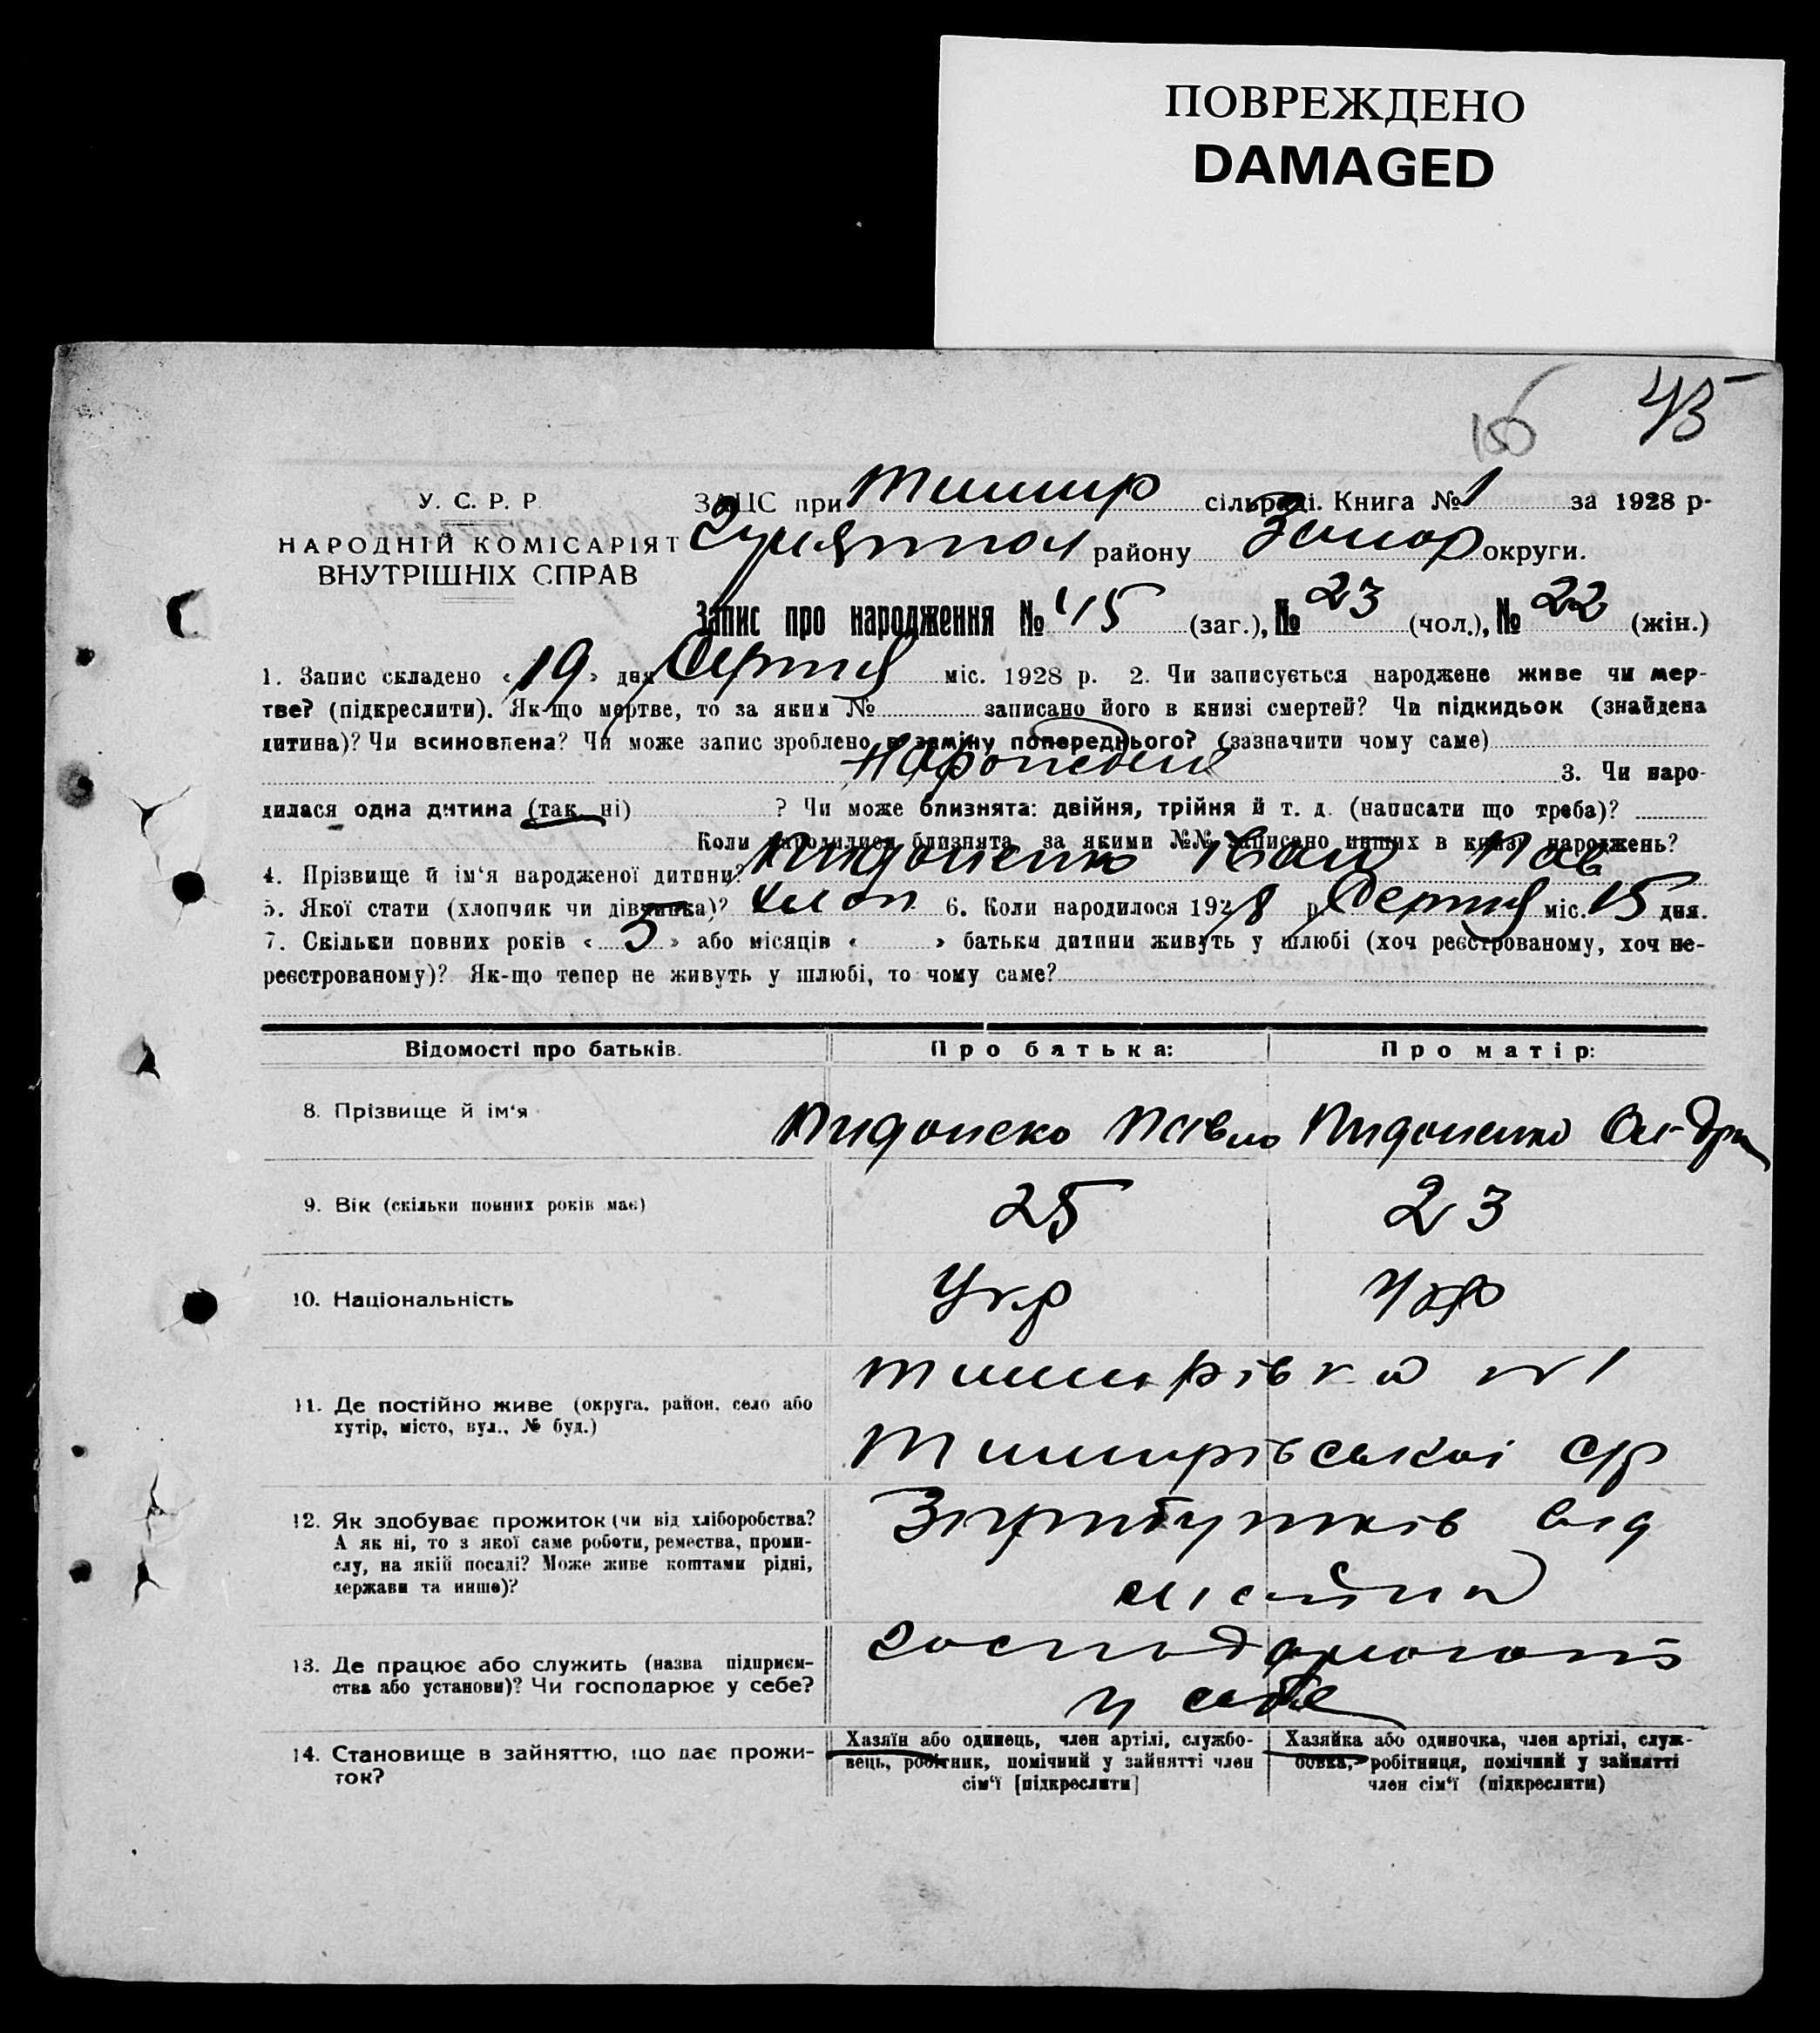 ПОВРЕЖДЕНО
DAMAGED
45
У. С. Р. Р.
НАРОДНІЙ КОМІСАРІЯТ
ВНУТРІШНІХ СПРАВ
ЗАЦС при сільраді. Книга № 1 за 1928 р.
району Запор округи.
Запис про народження № 45 (заг.), № 23 (чол.), № 22 (жін.)
1. Запис складено « 19 » дня Серпня міс. 1928 р. 2. Чи записується народжене живе чи мер-
тве? (підкреслити). Як-що мертве, то за яким № записано його в книзі смертей? Чи підкидьок (знайдена
дитина)? Чи всиновлена? Чи може запис зроблено в заміну попереднього? (зазначити чому саме)
3. Чи наро-
дилася одна дитина (так, ні) ? Чи може близнята: двійня, трійня й т. д. (написати що треба)?
Коли народилися близнята, за якими №№ записано инших в книзі народжень?
4. Прізвище й ім'я народженої дитини? Пидоненко Іван Пав
5. Якої стати (хлопчик чи дівчинка)? хлоп 6. Коли народилося 1928 р. Серпня міс. 15 дня.
7. Скільки повних років « 5 » або місяців « » батьки дитини живуть у шлюбі (хоч реєстрованому, хоч не-
реєстрованому)? Як-що тепер не живуть у шлюбі, то чому саме?
Відомості про батьків. Про батька: Про матір:
8. Прізвище й ім'я Пидонеко Павло Пидоненко
9. Вік (скільки повних років має) 25 23
10. Національність Укр Укр
11. Де постійно живе (округа, район, село або
хутір, місто, вул., № буд.)
№1
ср
12. Як здобуває прожиток (чи від хліборобства?
А як ні, то з якої саме роботи, ремества, проми-
слу, на якій посаді? Може живе коштами рідні,
держави та инше)?
від
13. Де працює або служить (назва підприєм-
ства або установи)? Чи господарює у себе?
у себе
14. Становище в зайняттю, що дає прожи-
ток?
Хазяїн або одинець, член артілі, службо-
вець, робітник, помічний у зайнятті член
сім'ї [підкреслити]
Хазяйка або одиночка, член артілі, служ-
бовка, робітниця, помічний у зайнятті
член сім'ї (підкреслити)